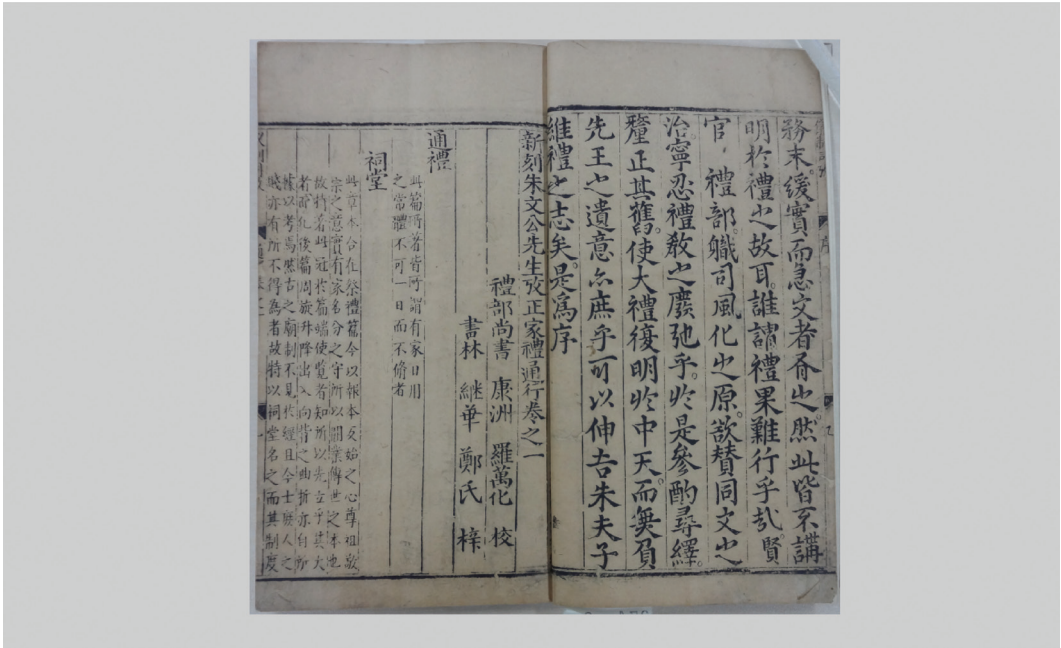 務末緩實而急文者有之然此皆不講
明於禮之故耳誰謂禮果難行乎哉賢
官禮部職司風化之原欲賛同文之
治寧忍禮教之廢弛乎於是參酌尋繹
釐正其舊使大禮復明於中天而無負
先王之遺意亦庶乎可以伸吾朱夫子
維禮之志矣是為序
新刻朱文公先生攷正家禮通行卷之一
禮部尚書 康洲 羅萬化 校
書林 継華 鄭氏 梓
通禮
此篇所著皆所謂有家日用
之常體不可一日而不脩者
祠堂
此章本合在祭禮篇今以報本反始之心尊祖敬
宗之意實有家名分之守所以開業傳世之本也
故特著此冠於篇端使覽者知所以先立乎其大
者而凡後篇周旋升降出入向背之曲折亦有所
據以考焉然古之廟制不見於經且今士庶人之
賤亦有所不得為者故特以祠堂名之而其制度